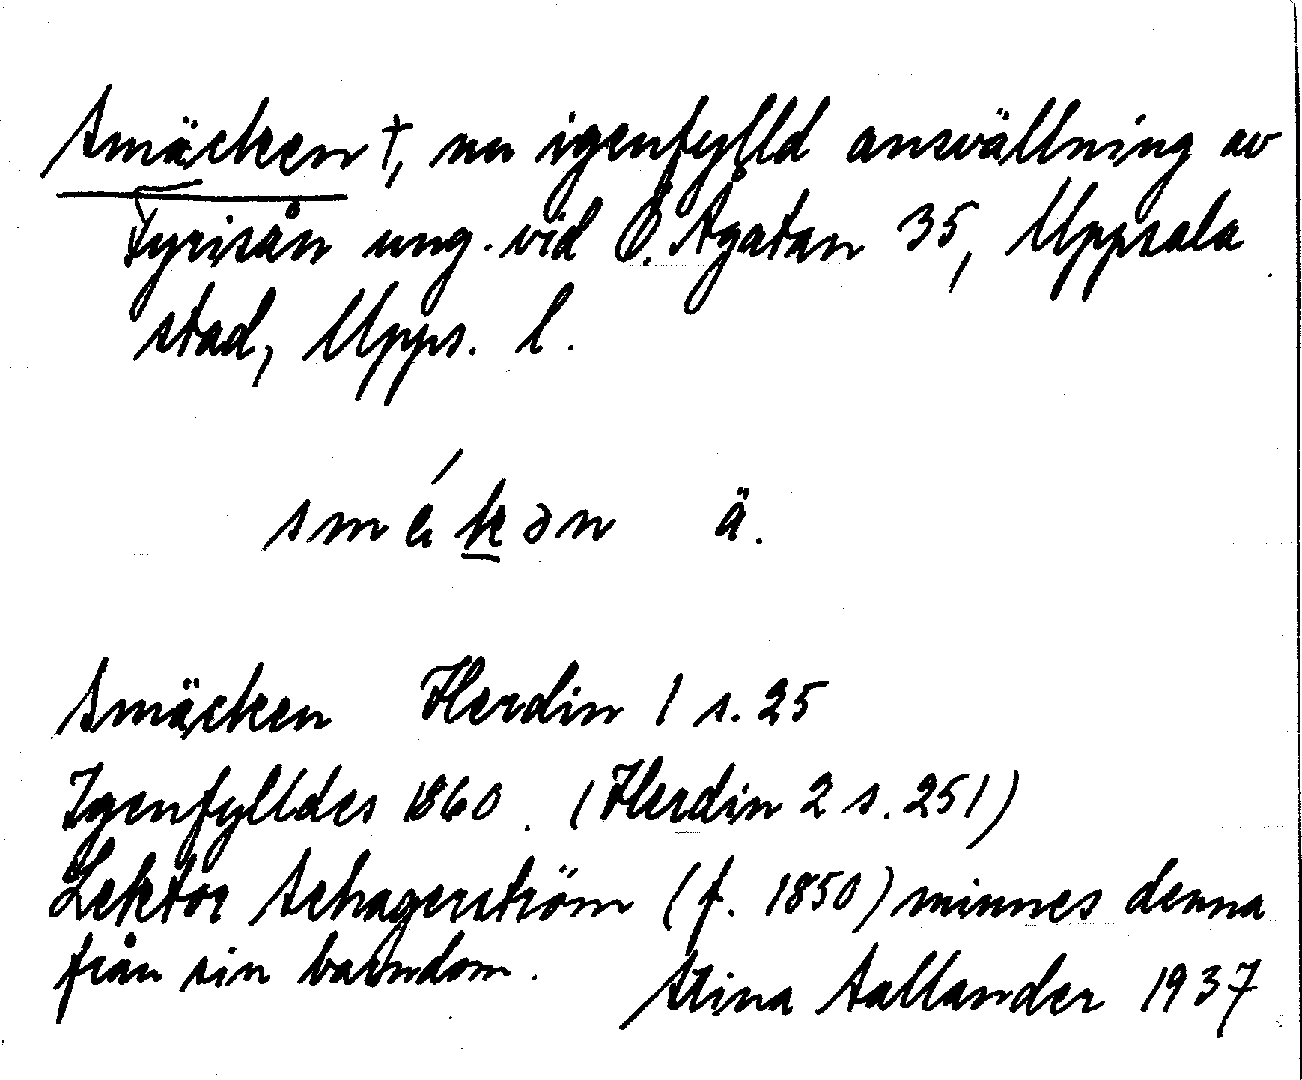 Smäcken †, nu igenfylld ansvällning av
Fyrisån ung. vid Ö. Ågatan 35, Uppsala
stad, Upps. l.
smék̲ən ä.
Smäcken Herdin 1 s. 25
Igenfylldes 1860. (Herdin 2 s. 251)
Lektor Schagerström (f. 1850) minnes denna
från sin barndom.
Stina Sallander 1937